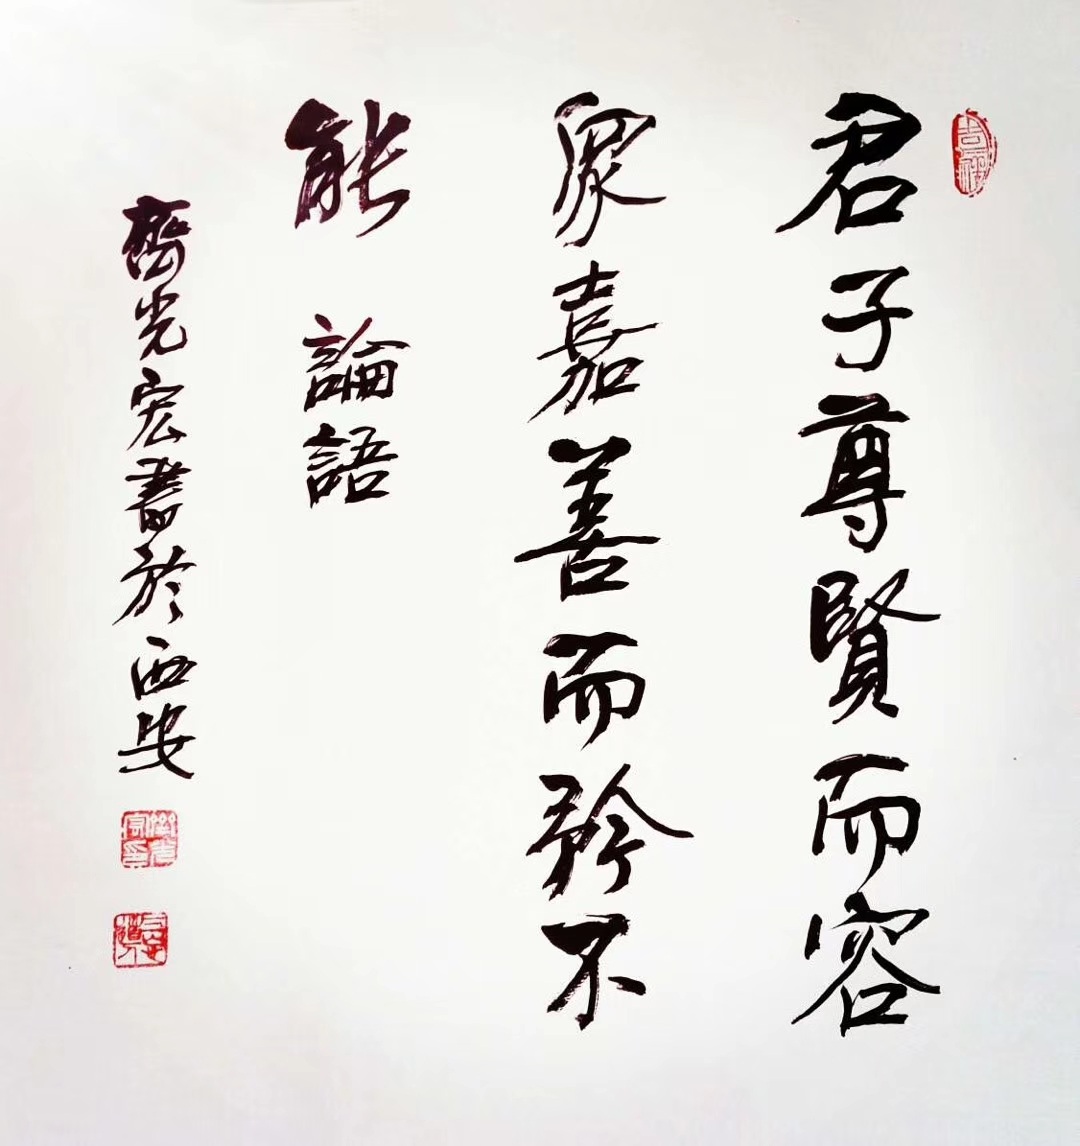 君子尊賢而容
眾嘉善而矜不
能 論語
光宏書於西安